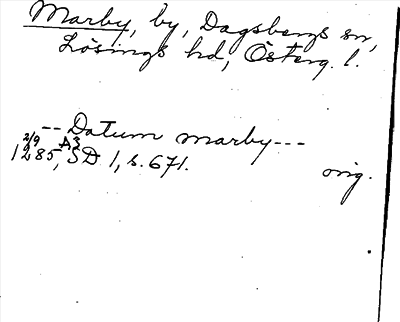 Marby, by, Dagsbergs sn,
Lösings hd, Österg. l.
-- Datum marby ---
2/9 A3
1285, SD 1, s. 671. orig.